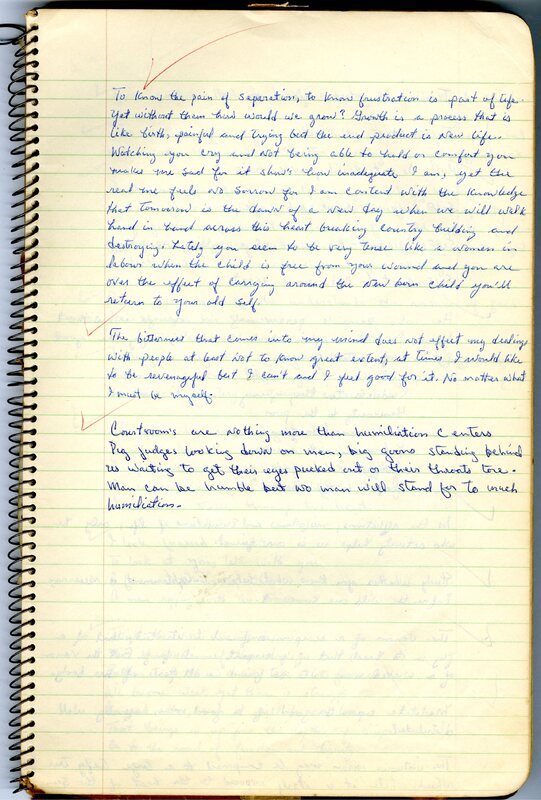 To know the pain of separation, to know frustration is part of life.
Yet without them how would we grow? Growth is a process that is
like birth, painful and trying but the end product is New life.
Watching you cry and Not being able to hold or comfort you
makes me sad for it show's how inadequate I am, yet the
real me feels no sorrow for I am content with the knowledge
that tomorrow is the dawn of a new day when we will walk
hand in hand across this heart breaking country building and
destroying. Lately you seem to be very tense like a women in
labour when the child is free from your wound and you are
over the effect of carrying around the new born child you'll
return to your old self.
The bitterness that comes into my mind does not effect my dealings
with people at least not to know great extent, at times I would like
to be revengeful but I can't and I feel good for it. No matter what
I must be myself.
Courtroom's are nothing more than humiliation Centers
Pig judges looking down on men, big goons standing behind
us waiting to get their eyes pucked out or their throats tore.
Man can be humble but no man will stand for to much
humiliation.